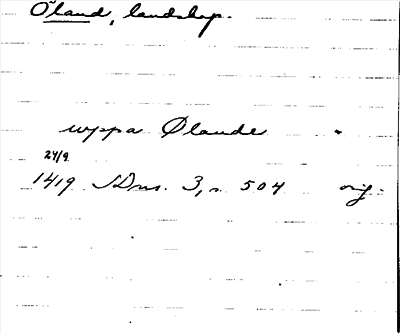 Öland, landskap.
uppa Ølande
24/9
1419 SDns. 3, s. 504 orig.